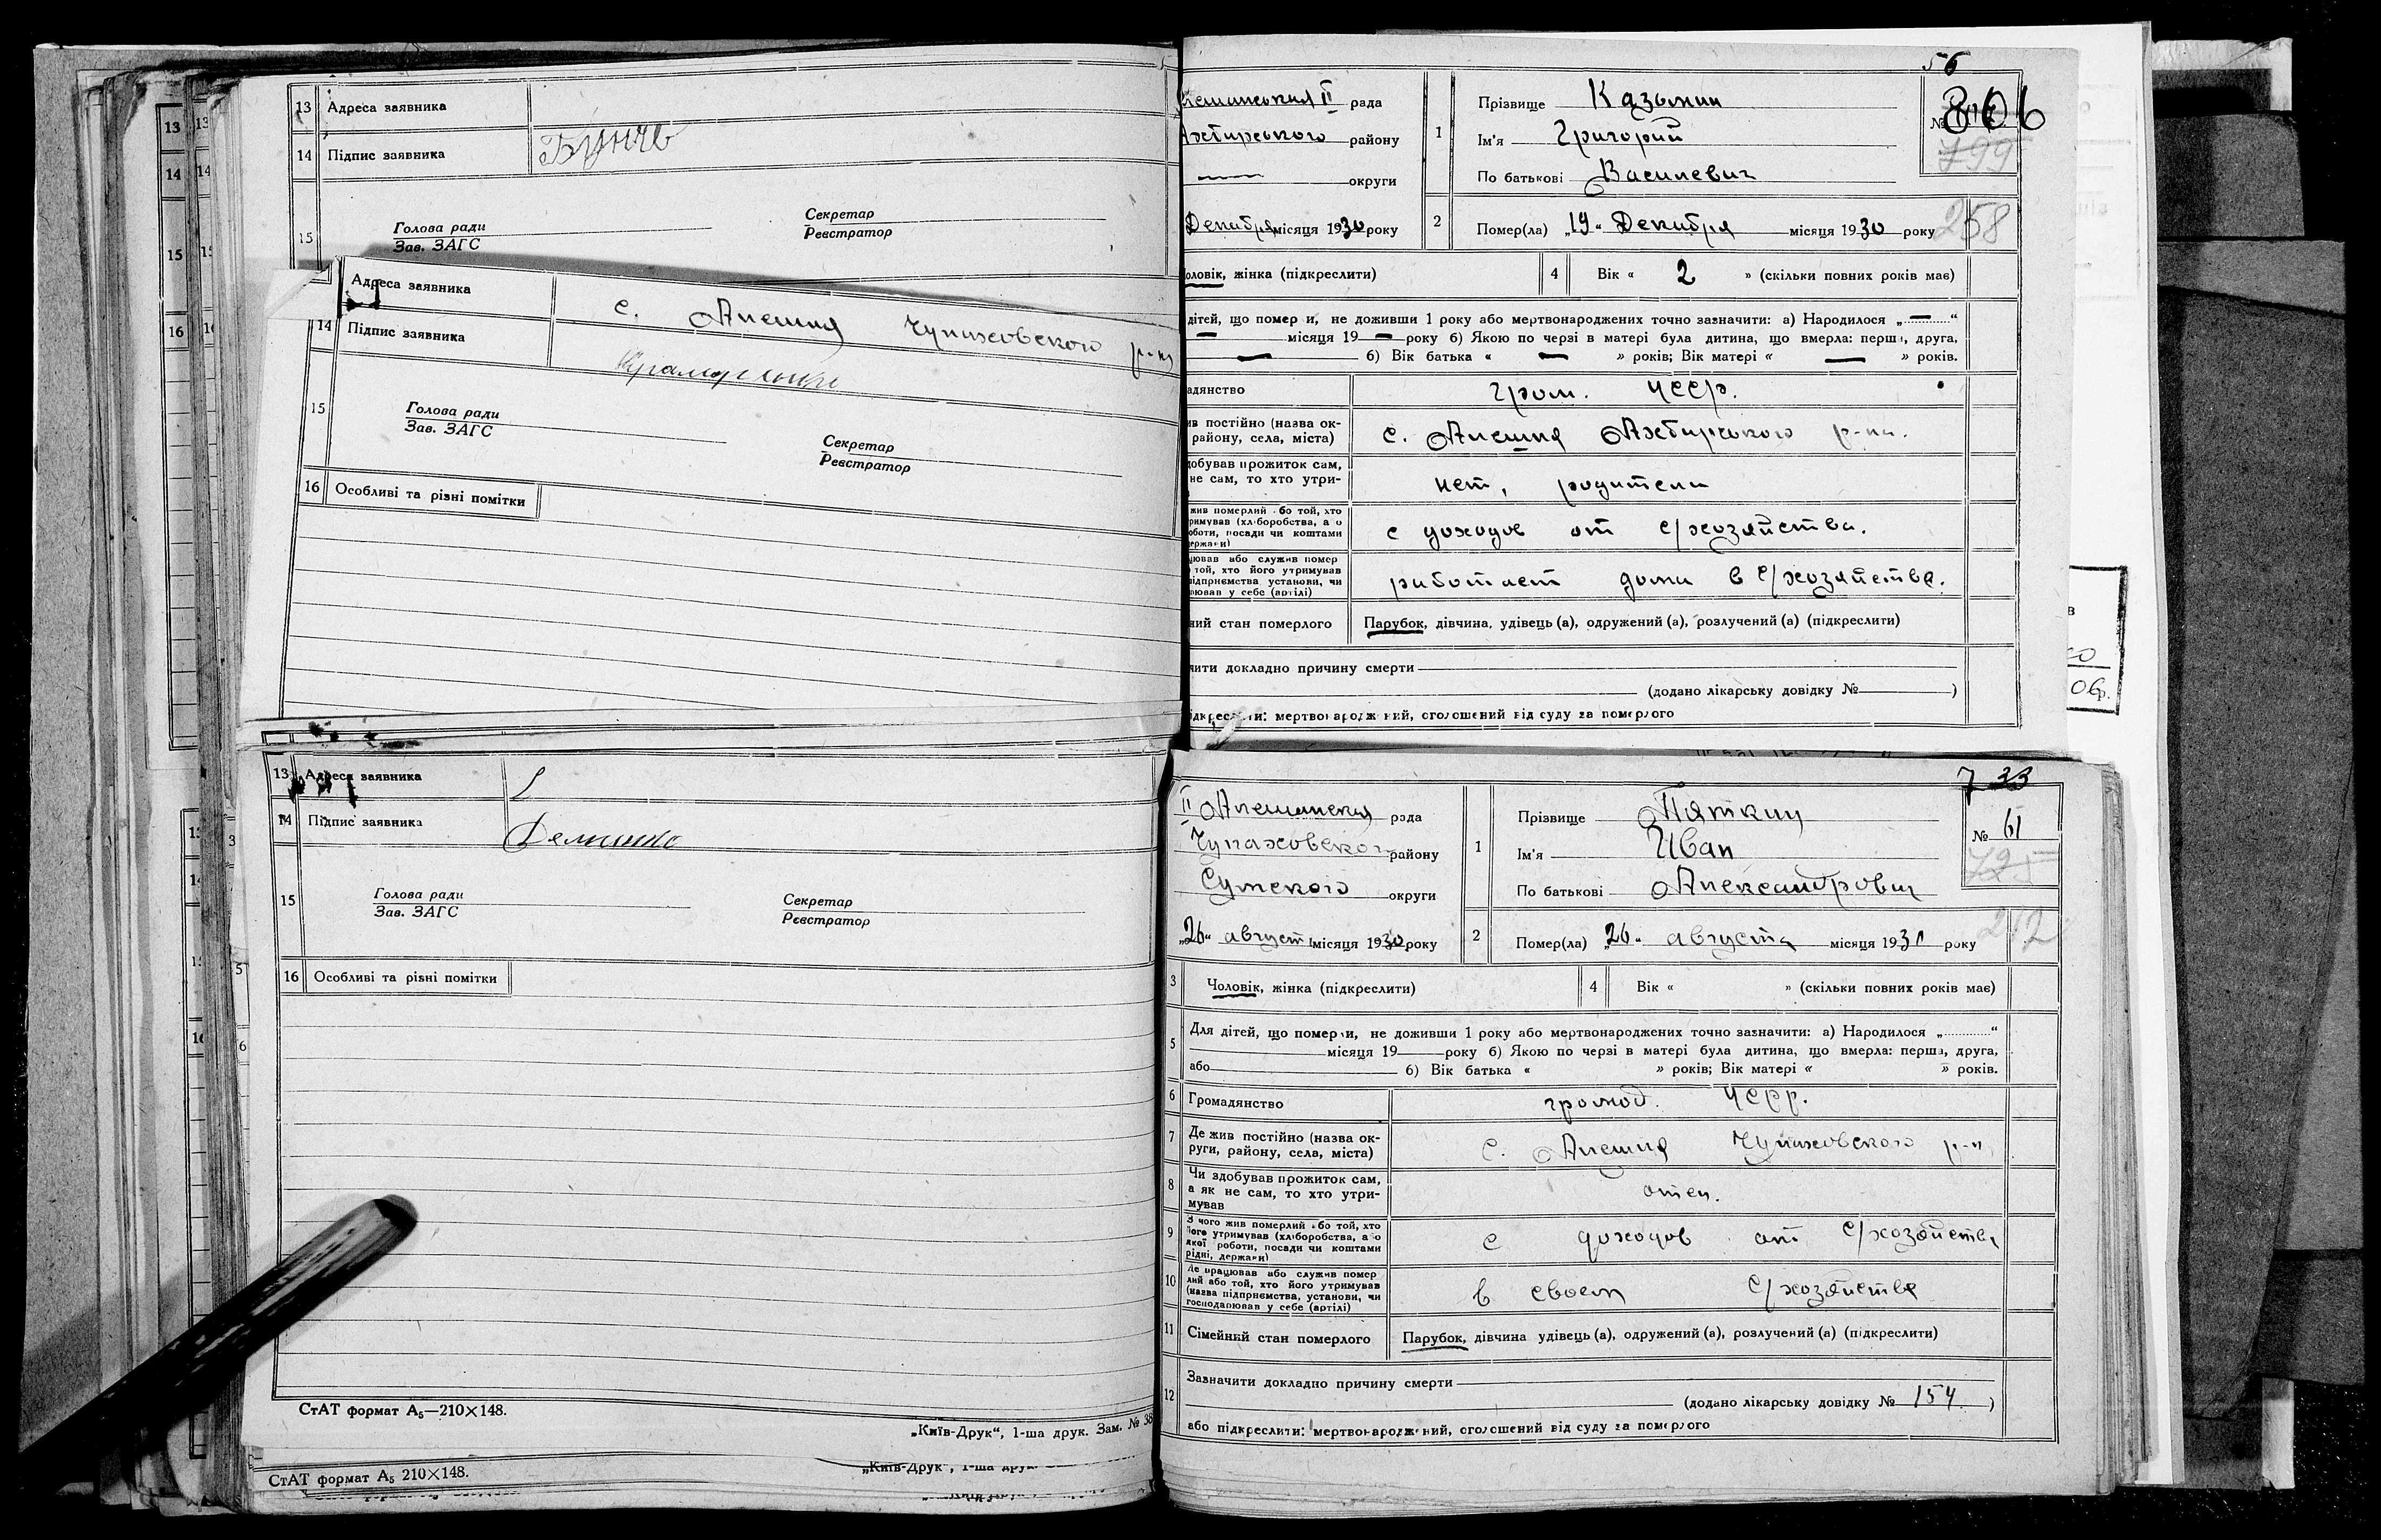 13 Адреса заявника
14 Підпис заявника
15 Голова ради
Зав. ЗАГС
Секретар
Реєстратор
Адреса заявника с. Алешня Чупаховского р-н
14 Підпис заявника
15 Голова ради
Зав. ЗАГС
Секретар
Реєстратор
16 Особливі та різні помітки
13 Адреса заявника
14 Підпис заявника
15 Голова ради
Зав. ЗАГС
Секретар
Реєстратор
16 Особливі та різні помітки
СтАТ формат А₅—210×148.
„Київ-Друк“, 1-ша друк. Зам. № 38
СтАТ формат А₅ 210×148.
56
II рада
Ахтирського району
округи
Декабря місяця 1930 року
1 Прізвище Казьмин
Ім'я Григорий
По батькові Василевич
№ 806
799
2 Помер(ла) „19“ Декабря місяця 1930 року
258
оловік, жінка (підкреслити)
4 Вік « 2 » (скільки повних років має)
дітей, що померли, не доживши 1 року або мертвонароджених точно зазначити: а) Народилося „ — “
— місяця 19 — року б) Якою по черзі в матері була дитина, що вмерла: перша, друга,
— б) Вік батька « — » років; Вік матері « — » років.
адянство гром. УССР.
ив постійно (назва ок-
району, села, міста) с. Алешня Ахтирського р-на.
добував прожиток сам,
не сам, то хто утри- нет, родители
жив померлий або той, хто
римував (хліборобства, або
оботи, посади чи коштами
держави) с доходов от с/хозяйства.
цював або служив помер
той, хто його утримував
підприємства, установи, чи
рював у себе (артілі) работает дома в с/хозяйстве.
ний стан померлого Парубок, дівчина, удівець (а), одружений (а), розлучений (а) (підкреслити)
чити докладно причину смерти
(додано лікарську довідку № )
ідкреслити: мертвонароджений, оголошений від суду за померлого
733
II Алешанская рада
Чупаховского району
Сумского округи
„26“ август місяця 1930 року
1 Прізвище Пяткин
Ім'я Иван
По батькові Александрович
№ 61
2 Помер(ла) „26“ августа місяця 1930 року
212
3 Чоловік, жінка (підкреслити)
4 Вік « » (скільки повних років має)
5 Для дітей, що померли, не доживши 1 року або мертвонароджених точно зазначити: а) Народилося „ “
місяця 19 року б) Якою по черзі в матері була дитина, що вмерла: перша, друга,
або б) Вік батька « » років; Вік матері « » років.
6 Громадянство громад. УСРР.
7 Де жив постійно (назва ок-
руги, району, села, міста) с. Алешня Чупаховского р-н
8 Чи здобував прожиток сам,
а як не сам, то хто утри-
мував отец.
9 З чого жив померлий або той, хто
його утримував (хліборобства, або
якої роботи, посади чи коштами
рідні, держави) с доходов от с/хозяйства
10 Де працював або служив помер
лий або той, хто його утримував
(назва підприємства, установи, чи
господарював у себе (артілі) в своем с/хозяйстве
11 Сімейний стан померлого Парубок, дівчина удівець (а), одружений (а), розлучений (а) (підкреслити)
12 Зазначити докладно причину смерти
(додано лікарську довідку № 154 )
або підкреслити: мертвонароджений, оголошений від суду за померлого